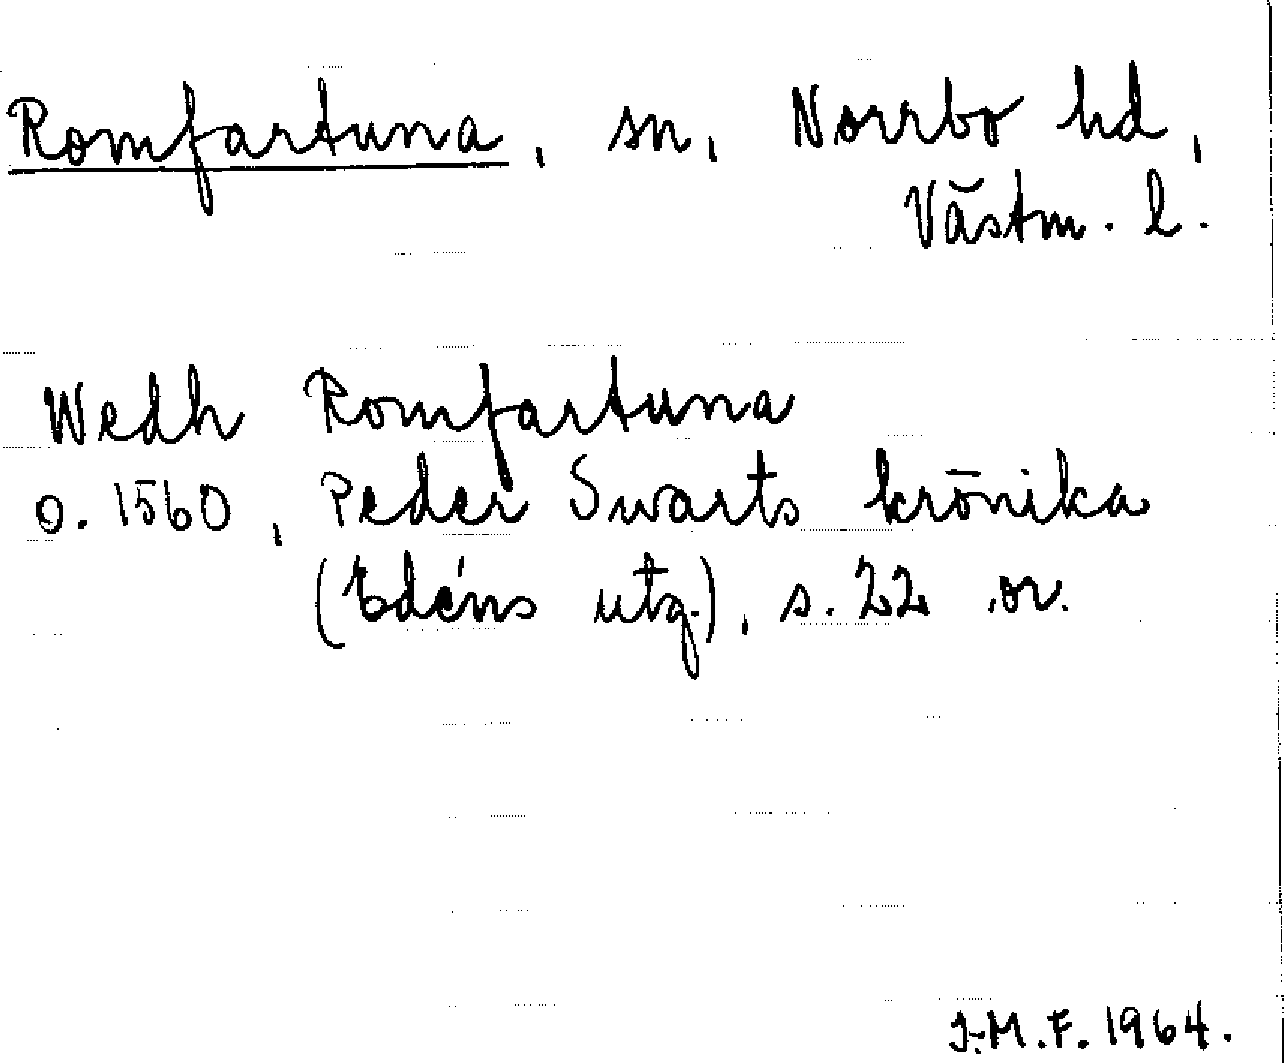 Romfartuna, sn, Norrbo hd,
Västm. l.
Wedh Romfartuna
o. 1560, Peder Swarts krönika
(Edéns utg.), s. 22 .or.
J.M.F. 1964.